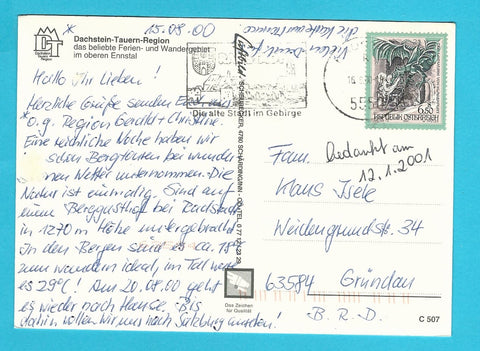 * 15.08.00
Dachstein-Tauern-Region
das beliebte Ferien- und Wandergebiet
im oberen Ennstal
Hallo Ihr Lieben!
Herzliche Grüße senden Euch aus
o.g. Region Gerald + Christine.
Eine herrliche Woche haben wir
schon Bergtouren bei wunder
vollem Wetter unternommen. Die
Natur ist einmalig. Sind auf
einem Berggasthof bei Radstadt
in 1270 m Höhe untergebracht.
In den Bergen sind es ca. 15°
zum wandern ideal, im Tal waren
es 29°C! Am 20.08.00 geht
es wieder nach Hause. Bis
dahin wollen wir uns noch Salzburg ansehen!
Vielen Dank für
die Karte aus
Die alte Stadt im Gebirge
6.50
REPUBLIK ÖSTERREICH
4780 SCHÄRDING/INN
Fam.
Klaus Isele
Weidengrundstr. 34
63584 Gründau
B.R.D.
bedankt am
12.1.2001
Das Zeichen
für Qualität
C 507